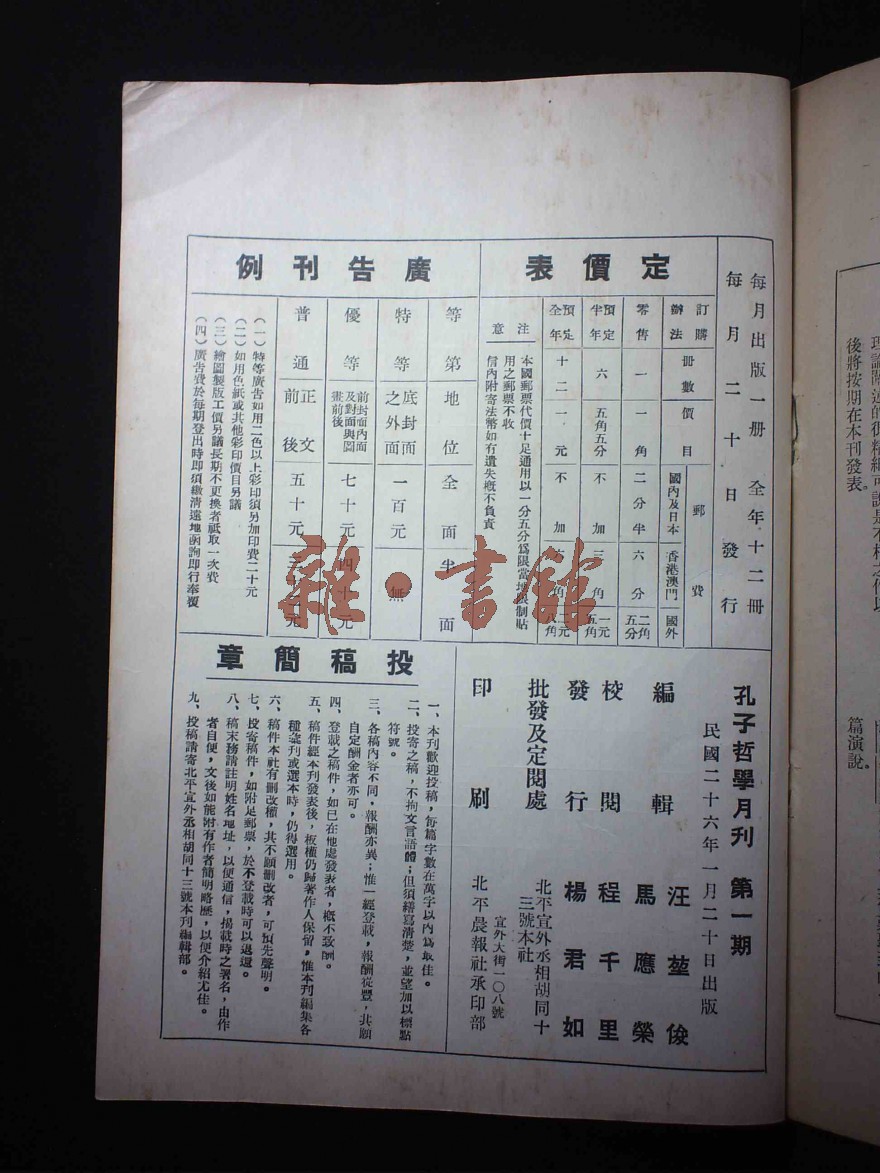 每月出版一册 全年十二冊
每月二十日發行
定價表
訂購辦法 冊數 價目 郵費
國內及日本 香港澳門 國外
零售 一 一角 二分半 六分 二角五分
預定半年 六 五角五分 不加 三角 一元五角
預定全年 十二 一元 不加
注意
本國郵票代價十足通用以一分五分為限當地限制貼
用之郵票不收
信內附寄法幣如有遺失概不負責
廣告刊例
等第 地位 全面 半面
特等 底封面之外面 一百元 無
優等 前封面內面及對面與圖畫前後 七十元 四十元
普通 正文前後 五十元
(一)特等廣告如用二色以上彩印須另加印費二十元
(二)如用色紙或其他彩印價目另議
(三)繪圖製版工價另議長期不更換者祗取一次費
(四)廣告費於每期登出時即須繳清遠地函詢即行奉覆
孔子哲學月刊 第一期
民國二十六年一月二十日出版
編輯 汪堃俊
馬應榮
校閱 程千里
發行 楊君如
批發及定閱處 北平宣外丞相胡同十
三號本社
印刷 宣外大街一〇八號
北平晨報社承印部
投稿簡章
一、本刊歡迎投稿,每篇字數在萬字以內為取佳。
二、投寄之稿,不拘文言語體;但須繕寫清楚,並望加以標點
符號。
三、各稿內容不同,報酬亦異;惟一經登載,報酬從豐,其願
自定酬金者亦可。
四、登載之稿件,如已在他處發表者,概不致酬。
五、稿件經本刊發表後,板權仍歸著作人保留,惟本刊編集各
種叢刊或選本時,仍得選用。
六、稿件本社有刪改權,其不願刪改者,可預先聲明。
七、投寄稿件,如附足郵票,於不登載時可以退還。
八、稿末務請註明姓名地址,以便通信,揭載時之署名,由作
者自便,文後如能附有作者簡明略歷,以便介紹尤佳。
九、投稿請寄北平宣外丞相胡同十三號本刊編輯部。
雜·書館
後將按期在本刊發表。
篇演說。